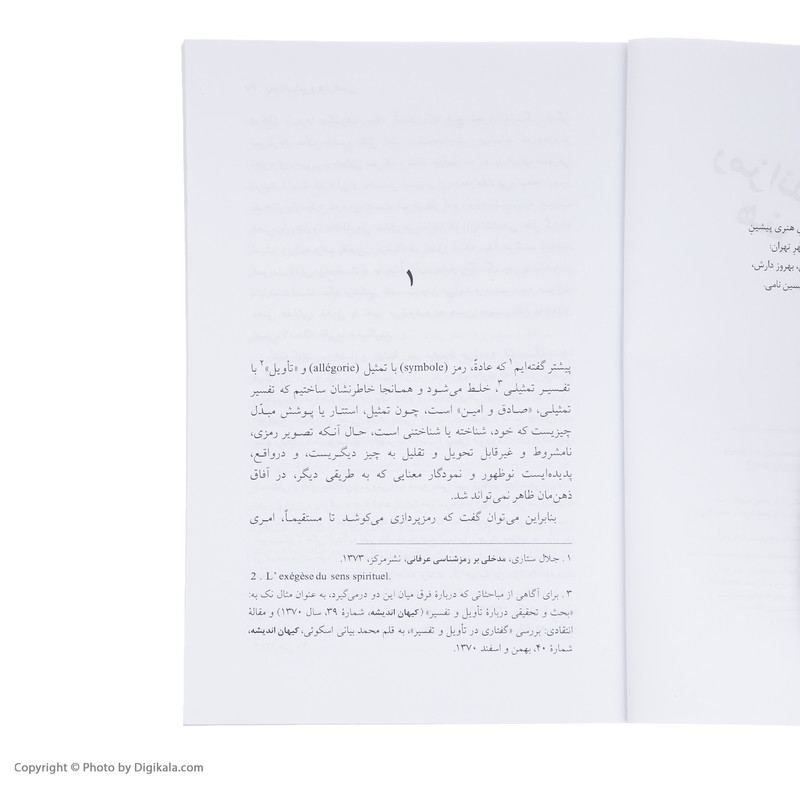 ی هنری پیشینِ
هر تهران:
، بهروز دارش،
سین نامی.
۱
پیشتر گفته‌ایم۱ که عادةً، رمز (symbole) با تمثیل (allégorie) و «تأویل»۲ با
تفسیر تمثیلی۳، خلط می‌شود و همانجا خاطرنشان ساختیم که تفسیر
تمثیلی، «صادق و امین» است، چون تمثیل، استتار یا پوشش مبدّل
چیزیست که خود، شناخته یا شناختنی است، حال آنکه تصویر رمزی،
نامشروط و غیرقابل تحویل و تقلیل به چیز دیگریست، و درواقع،
پدیده‌ایست نوظهور و نمودگار معنایی که به طریقی دیگر، در آفاق
ذهن‌مان ظاهر نمی‌تواند شد.
بنابراین می‌توان گفت که رمزپردازی می‌کوشد تا مستقیماً، امری
۱ . جلال ستاری، مدخلی بر رمزشناسی عرفانی، نشرمرکز، ۱۳۷۳.
2 . L' exégèse du sens spirituel.
۳ . برای آگاهی از مباحثاتی که دربارهٔ فرق میان این دو درمی‌گیرد، به عنوان مثال نک به:
«بحث و تحقیقی دربارهٔ تأویل و تفسیر» (کیهان اندیشه، شمارهٔ ۳۹، سال ۱۳۷۰) و مقالهٔ
انتقادی: بررسی «گفتاری در تأویل و تفسیر»، به قلم محمد بیانی اسکوئی، کیهان اندیشه،
شمارهٔ ۴۰، بهمن و اسفند ۱۳۷۰.
Copyright © Photo by Digikala.com